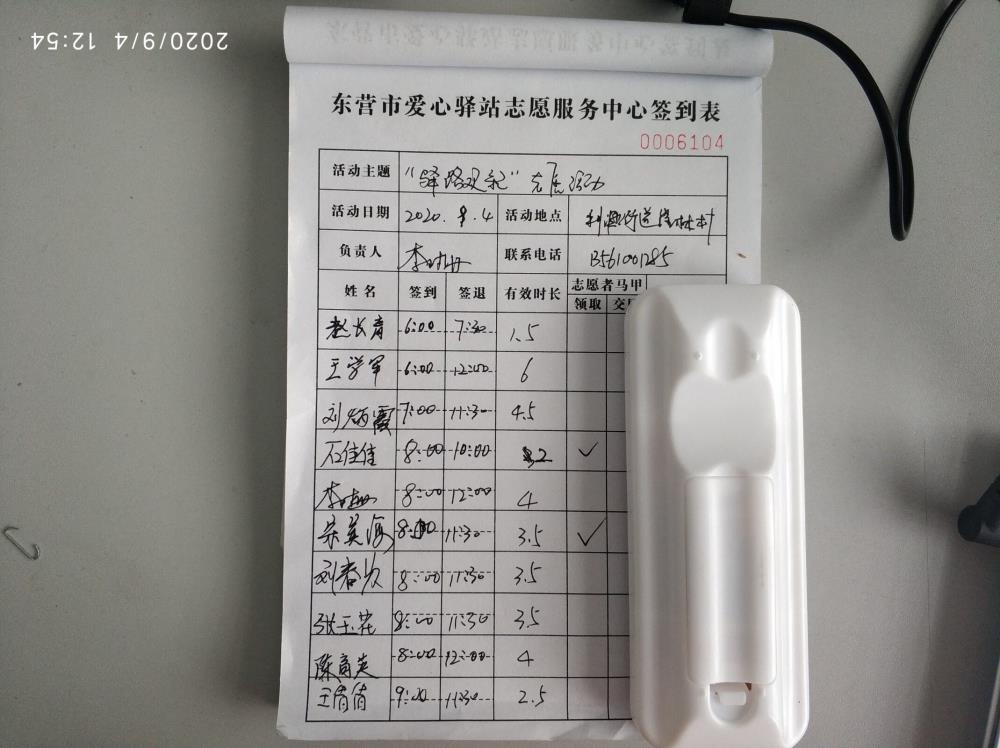 2020/9/4 12:54
东营市爱心驿站志愿服务中心签到表
0006104
活动主题 "驿路观记" 志愿活动
活动日期 2020.9.4 活动地点
负责人 联系电话 13561001285
姓名 签到 签退 有效时长 志愿者马甲
领取
赵长青 6:00 7:30 1.5
王学军 6:00 12:00 6
刘炳霞 7:00 11:30 4.5
石佳佳 8:00 10:00 2 ✓
8:00 12:00 4
宋英海 8:00 11:30 3.5 ✓
刘春 8:00 11:30 3.5
张玉花 8:00 11:30 3.5
陈育英 8:00 12:00 4
王倩倩 9:00 11:30 2.5